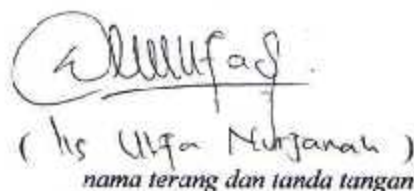 ( Iis Ulfa Nurjanah )
nama terang dan tanda tangan